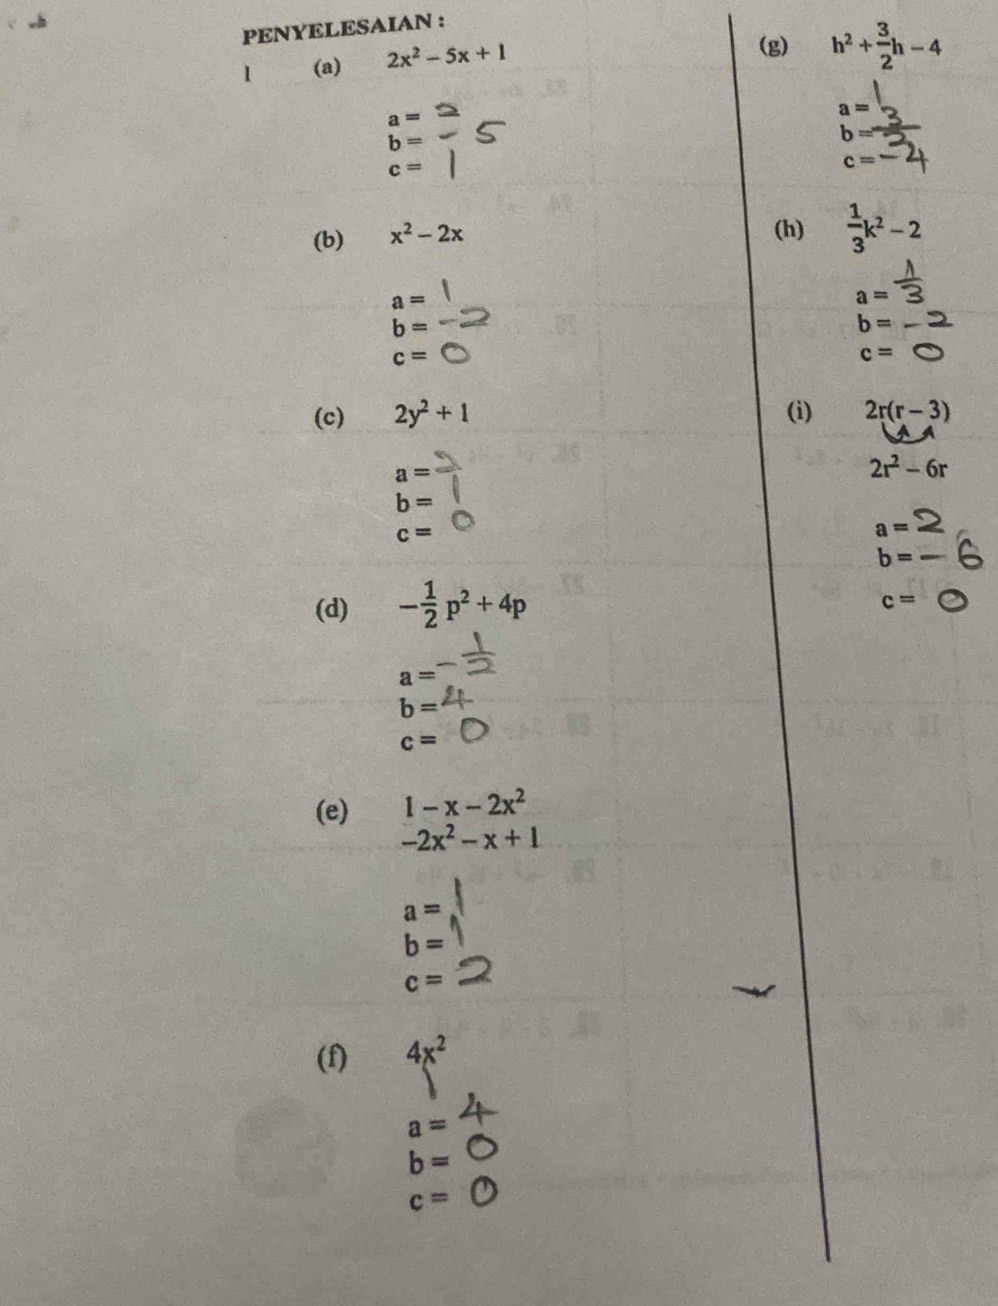 PENYELESAIAN :
1 (a) 2x² – 5x + 1
a = 2
b = – 5
c = 1
(b) x² – 2x
a = 1
b = –2
c = 0
(c) 2y² + 1
a = 2
b = 1
c = 0
(d) –1/2 p² + 4p
a = –1/2
b = 4
c = 0
(e) 1 – x – 2x²
–2x² – x + 1
a = 1
b = 1
c = 2
(f) 4x²
a = 4
b = 0
c = 0
(g) h² + 3/2h – 4
a = 1
b = 3/2
c = –4
(h) 1/3k² – 2
a = 1/3
b = – 2
c = 0
(i) 2r(r – 3)
2r² – 6r
a = 2
b = – 6
c = 0